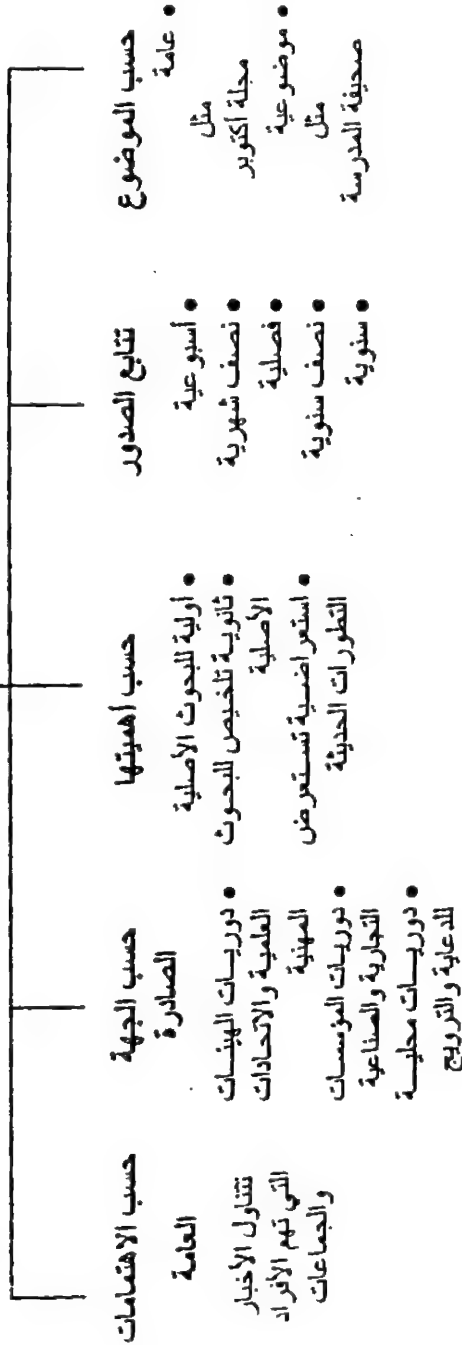 حسب الموضوع
• عامة
مثل
مجلة أكتوبر
• موضوعية
مثل
صحيفة المدرسة
تتابع الصدور
• أسبوعية
• نصف شهرية
• فصلية
• نصف سنوية
• سنوية
حسب أهميتها
• أولية للبحوث الأصلية
• ثانوية تلخيص للبحوث
الأصلية
• استعراضية تستعرض
التطورات الحديثة
حسب الجهة
الصادرة
• دوريات الهيئات
العلمية والاتحادات
المهنية
• دوريات المؤسسات
التجارية والصناعية
• دوريات محلية
للدعاية والترويج
حسب الاهتمامات
العامة
تتناول الأخبار
التي تهم الأفراد
والجماعات